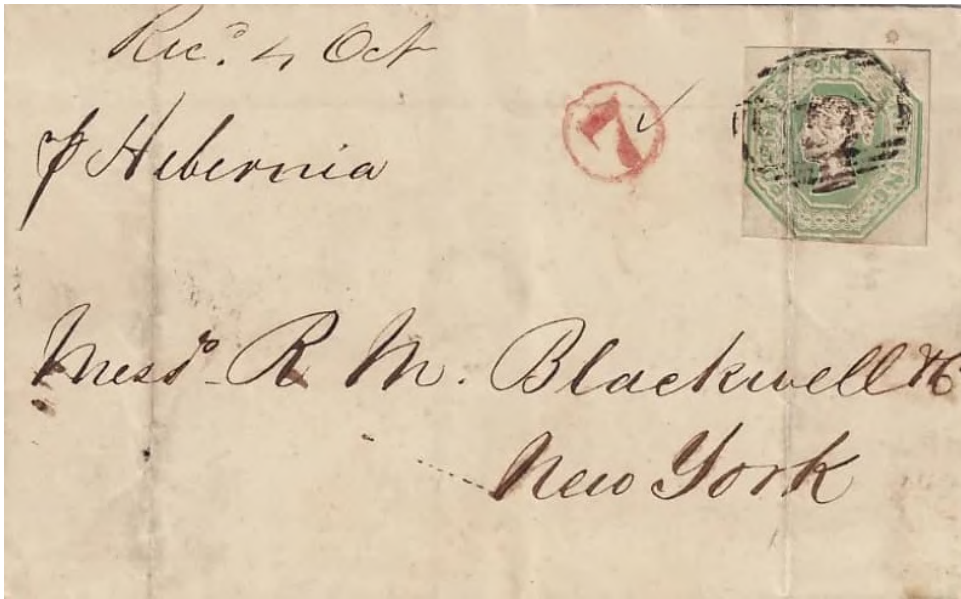 Rec.d 4 Oct
p Hibernia
7
ONE
Mess.rs R M. Blackwell & Co
New York